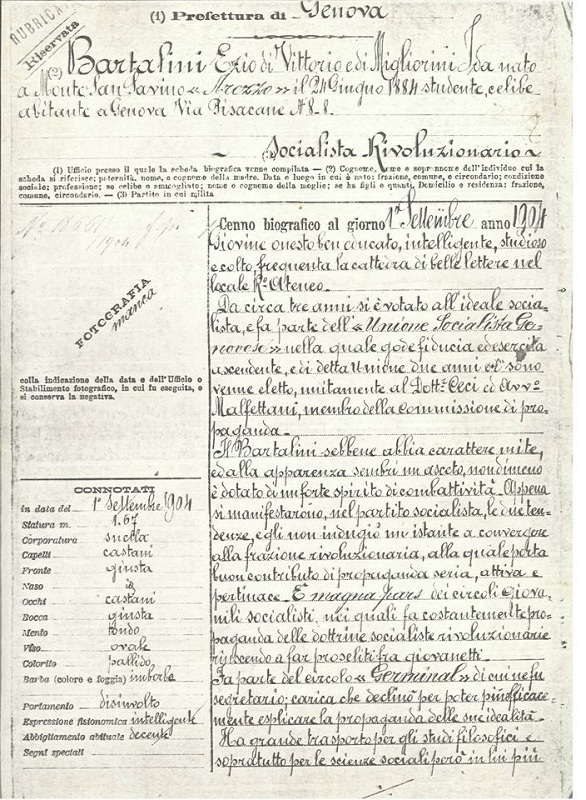 RUBRICA
Riservata
(1) Prefettura di Genova
(2) Bartalini Ezio di Vittorio e di Migliorini Ida nato
a Monte San Savino « Arezzo » il 24 Giugno 1884 studente, celibe
abitante a Genova Via Pisacane N 8-8.
(3) Socialista Rivoluzionario
(1) Ufficio presso il quale la scheda biografica venne compilata — (2) Cognome, nome e soprannome dell'individuo cui la
scheda si riferisce; paternità, nome, e cognome della madre. Data e luogo in cui è nato; frazione, comune, e circondario; condizione
sociale; professione; se celibe o ammogliato; nome e cognome della moglie; se ha figli e quanti. Domicilio o residenza: frazione,
comune, circondario. — (3) Partito in cui milita
1904
FOTOGRAFIA
manca
colla indicazione della data e dell'Ufficio o
Stabilimento fotografico, in cui fu eseguita, e
si conserva la negativa.
CONNOTATI
in data del 1° Settembre 1904
Statura m. 1.67
Corporatura snella
Capelli castani
Fronte giusta
Naso id
Occhi castani
Bocca giusta
Mento tondo
Viso ovale
Colorito pallido
Barba (colore e foggia) imberbe
Portamento disinvolto
Espressione fisionomica intelligente
Abbigliamento abituale decente
Segni speciali
Cenno biografico al giorno 1° Settembre anno 1904
Giovine onesto ben educato, intelligente, studioso
e colto, frequenta la cattedra di belle lettere nel
locale R° Ateneo.
Da circa tre anni si è votato all'ideale socia-
lista, e fa parte dell'« Unione Socialista Ge-
novese » nella quale gode fiducia ed esercita
ascendente, e di detta Unione due anni or sono
venne eletto, unitamente al Dott. Ceci ed Avv°
Malfettani, membro della commissione di pro-
paganda.
Il Bartalini sebbene abbia carattere mite,
ed alla apparenza sembri un asceta, nondimeno
è dotato di un forte spirito di combattività. Appena
si manifestarono, nel partito socialista, le due ten-
denze, egli non indugiò un istante a convergere
alla frazione rivoluzionaria, alla quale porta
buon contributo di propaganda seria, attiva e
pertinace. È magna pars dei circoli giova-
nili socialisti, nei quali fa costantemente pro-
paganda delle dottrine socialiste rivoluzionarie
riuscendo a far proseliti fra giovanetti.
Fa parte del circolo « Germinal » di cui ne fu
segretario; carica che declinò per poter più efficace-
mente esplicare la propaganda delle sue idealità.
Ha grande trasporto per gli studi filosofici e
sopratutto per le scienze sociali però in lui più